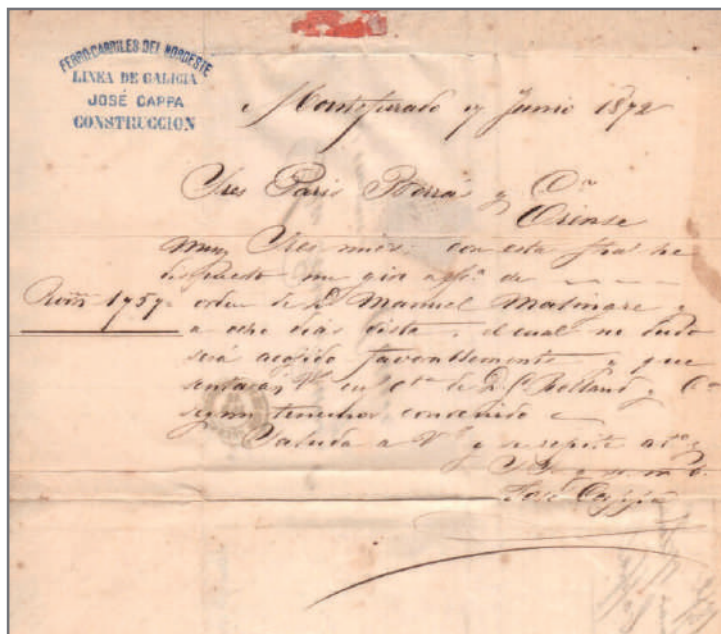 FERRO-CARRILES DEL NOROESTE
LINEA DE GALICIA
JOSÉ CAPPA
CONSTRUCCION
Montefurado 7 Junio 1872
Sres Paris Porras y Cª
Orense
Muy Sres mios: con esta fha he
dispuesto un giro a/fº de
Rvón 1757 orden de D Manuel
a ocho dias vista, el cual no dudo
será acojido favorablemente y que
sentarán Vs en cta de D. G. Rolland y Cª
segun tenemos convenido
Saluda a Vs y se repite atº y
S. S. q. s. m. b.
José Cappa